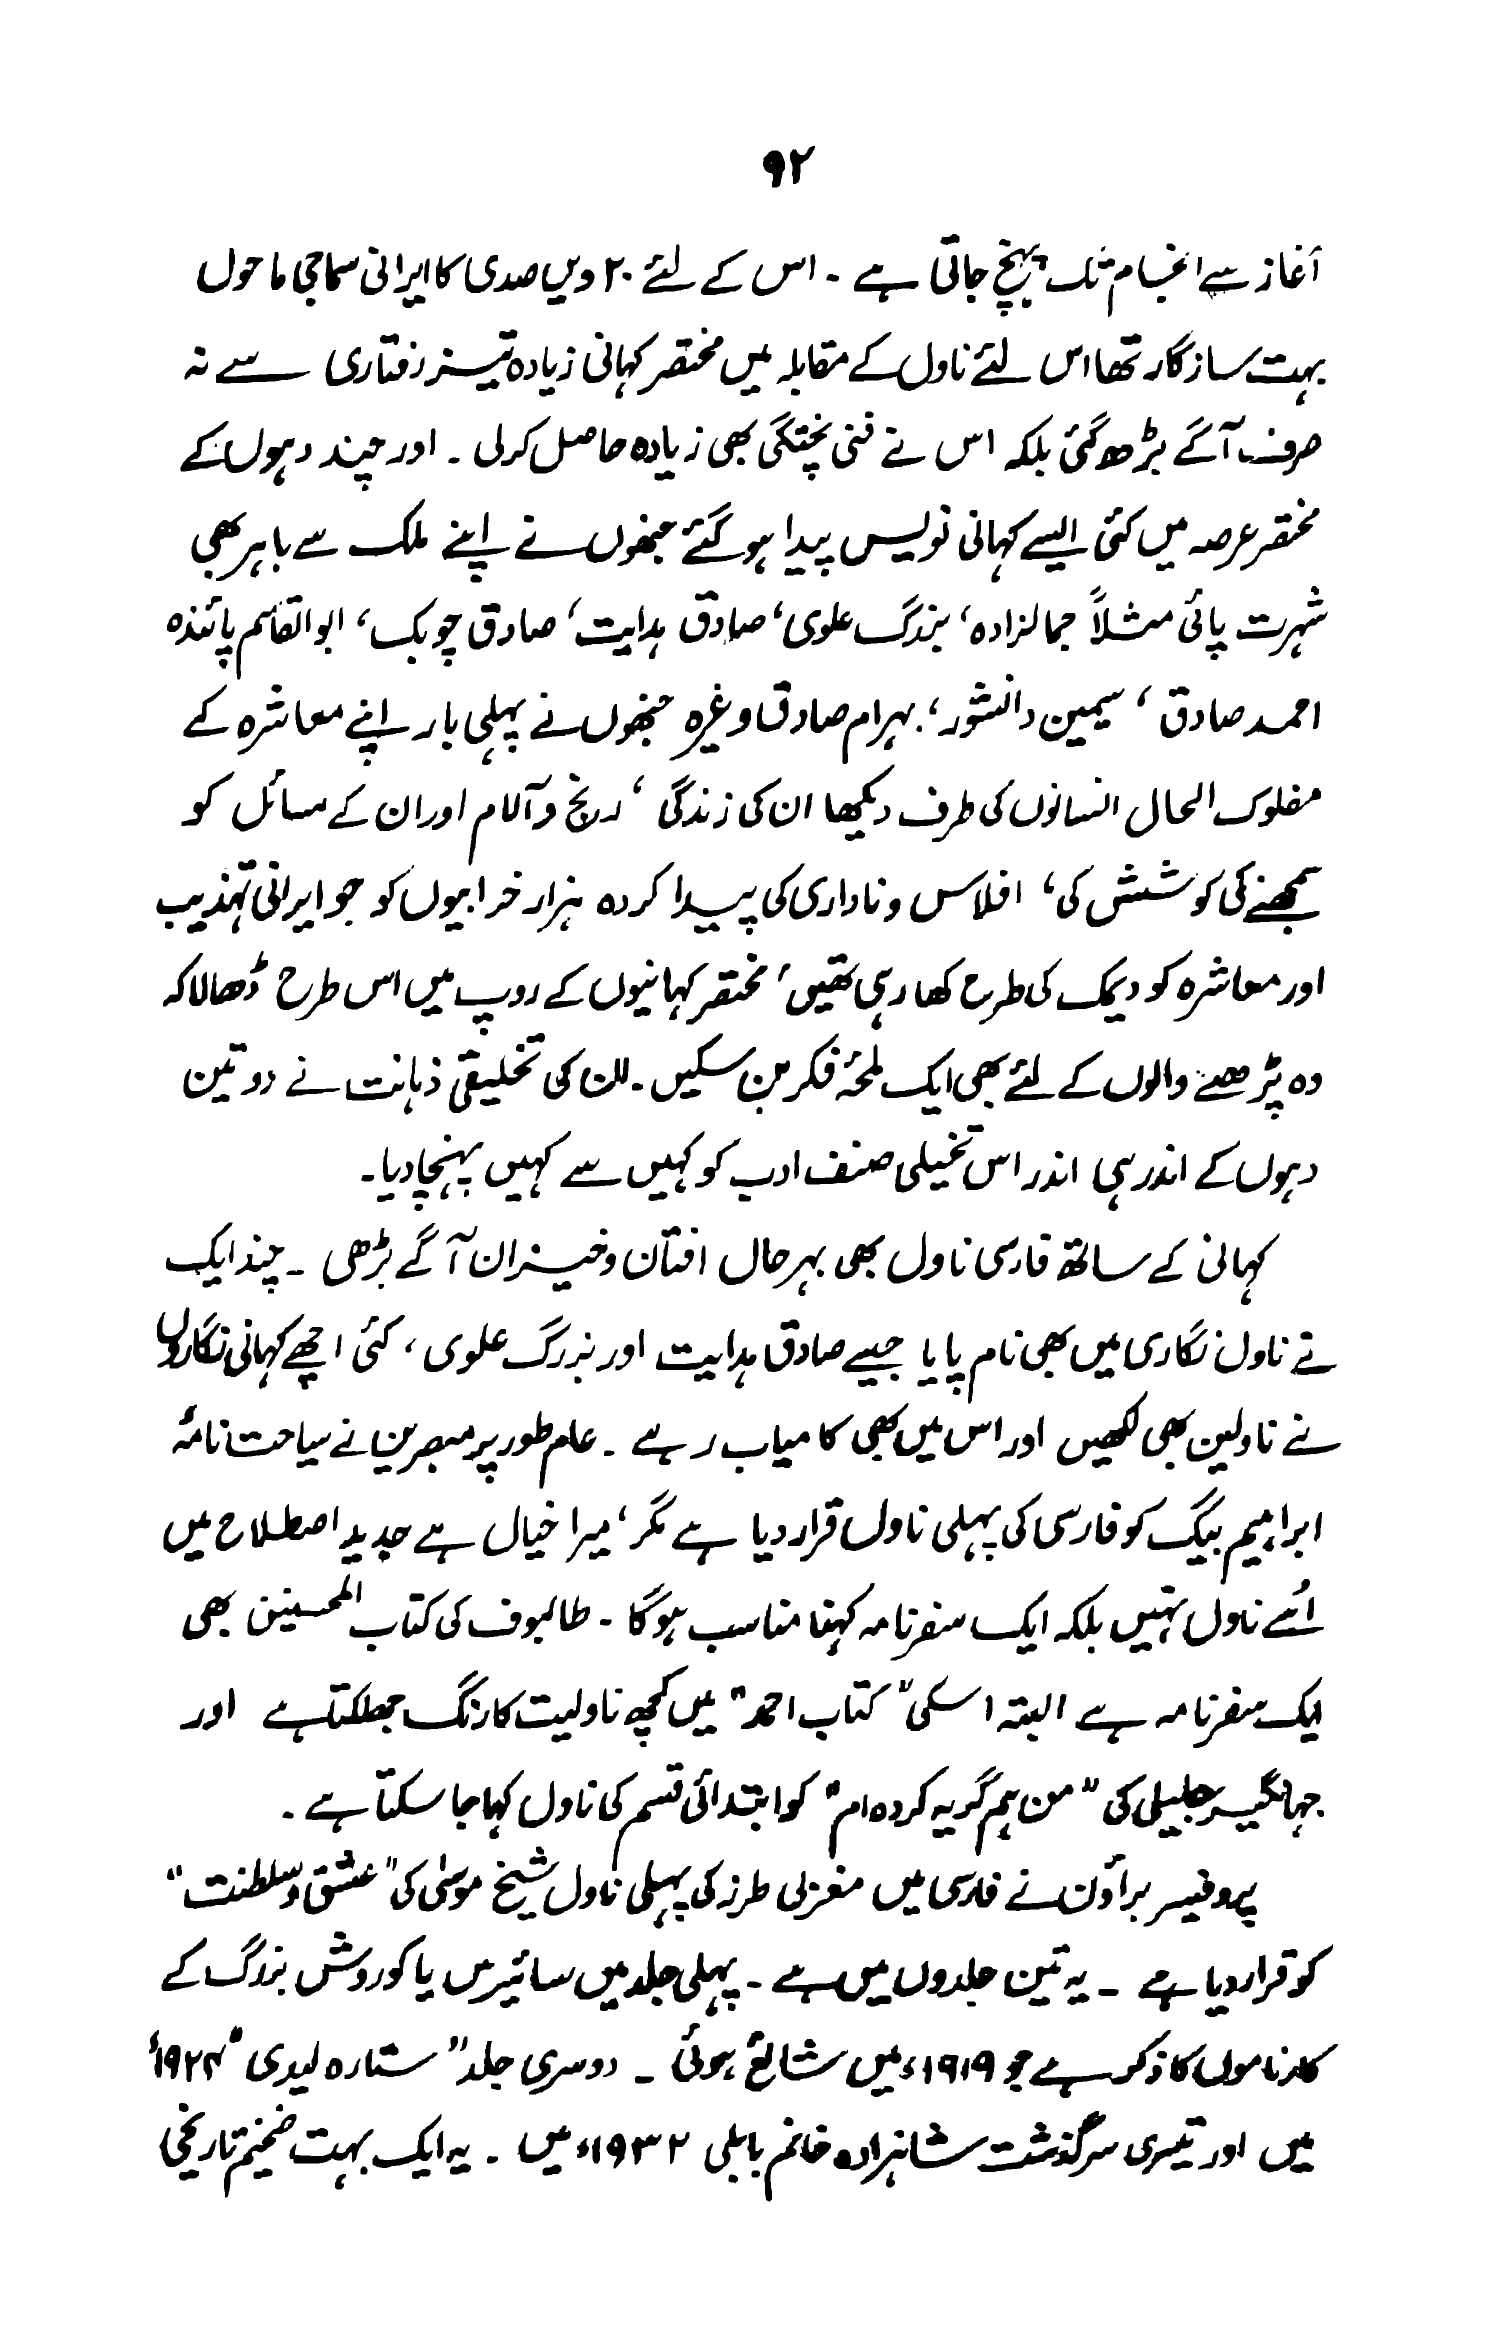 ۹۲
آغاز سے انجام تک پہنچ جاتی ہے ۔ اس کے لئے ۲۰ ویں صدی کا ایرانی سماجی ماحول
بہت سازگار تھا اس لئے ناول کے مقابلہ میں مختصر کہانی زیادہ تیز رفتاری سے نہ
صرف آگے بڑھ گئی بلکہ اس نے فنی پختگی بھی زیادہ حاصل کرلی ۔ اور چند دہوں کے
مختصر عرصہ میں کئی ایسے کہانی نویس پیدا ہو گئے جنھوں نے اپنے ملک سے باہر بھی
شہرت پائی مثلاً جمالزادہ، بزرگ علوی، صادق ہدایت، صادق چوبک، ابوالقاسم پائندہ
احمد صادق، سیمین دانشور، بہرام صادق وغیرہ جنھوں نے پہلی بار اپنے معاشرہ کے
مفلوک الحال انسانوں کی طرف دیکھا ان کی زندگی، رنج و آلام اور ان کے مسائل کو
سمجھنے کی کوشش کی، افلاس و ناداری کی پیدا کردہ ہزار خرابیوں کو جو ایرانی تہذیب
اور معاشرہ کو دیمک کی طرح کھا رہی تھیں، مختصر کہانیوں کے روپ میں اس طرح ڈھالا کہ
وہ پڑھنے والوں کے لئے بھی ایک لمحۂ فکر بن سکیں ۔ ان کی تخلیقی ذہانت نے دو تین
دہوں کے اندر ہی اندر اس تخیلی صنف ادب کو کہیں سے کہیں پہنچا دیا۔
کہانی کے ساتھ فارسی ناول بھی بہرحال افتان و خیزان آگے بڑھی ۔ چند ایک
نے ناول نگاری میں بھی نام پایا جیسے صادق ہدایت اور بزرگ علوی، کئی اچھے کہانی نگاروں
نے ناولیں بھی لکھیں اور اس میں بھی کامیاب رہے ۔ عام طور پر مبصرین نے سیاحت نامۂ
ابراہیم بیگ کو فارسی کی پہلی ناول قرار دیا ہے مگر، میرا خیال ہے جدید اصطلاح میں
اُسے ناول نہیں بلکہ ایک سفرنامہ کہنا مناسب ہوگا ۔ طالبوف کی کتاب المحسنین بھی
ایک سفرنامہ ہے البتہ اسکی "کتاب احمد" میں کچھ ناولیت کا رنگ جھلکتا ہے اور
جہانگیر جلیلی کی "من ہم گریہ کردہ ام" کو ابتدائی قسم کی ناول کہا جا سکتا ہے ۔
پروفیسر براؤن نے فارسی میں مغربی طرز کی پہلی ناول شیخ موسیٰ کی "عشق و سلطنت"
کو قرار دیا ہے ۔ یہ تین جلدوں میں ہے ۔ پہلی جلد میں سائیرس یا کوروش بزرگ کے
کارناموں کا ذکر ہے جو ۱۹۱۹ء میں شائع ہوئی ۔ دوسری جلد "ستارہ لیدی" ۱۹۲۴ء
میں اور تیسری سرگذشت شاہزادہ خانم بابلی ۱۹۳۲ء میں ۔ یہ ایک بہت ضخیم تاریخی